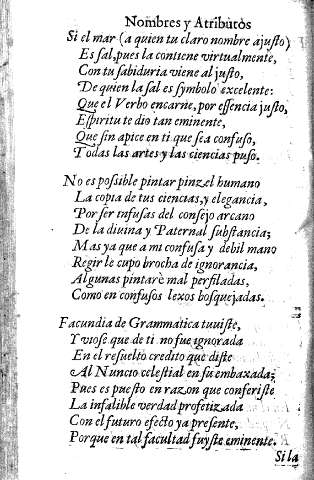 Nombres y Atributos
Si el mar (a quien tu claro nombre ajusto)
Es sal, pues la contiene virtualmente,
Con tu sabiduria viene al justo,
De quien la sal es symbolo excelente:
Que el Verbo encarne, por essencia justo,
Espiritu te dio tan eminente,
Que sin apice en ti que sea confuso,
Todas las artes y las ciencias puso.
No es possible pintar pinzel humano
La copia de tus ciencias, y elegancia,
Por ser infusas del consejo arcano
De la diuina y Paternal substancia;
Mas ya que a mi confusa y debil mano
Regir le cupo brocha de ignorancia,
Algunas pintarè mal perfiladas,
Como en confusos lexos bosquejadas.
Facundia de Grammatica tuuiste,
Y viose que de ti no fue ignorada
En el resuelto credito que diste
Al Nuncio celestial en su embaxada;
Pues es puesto en razon que conferiste
La infalible verdad profetizada
Con el futuro efecto ya presente,
Porque en tal facultad fuyste eminente.
Si la